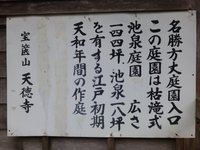 名勝方丈庭園入口
この庭園は枯滝式
池泉庭園　広さ
一四四坪　池泉一八坪
を有する江戸初期
天和年間の作庭
宝篋山　天徳寺